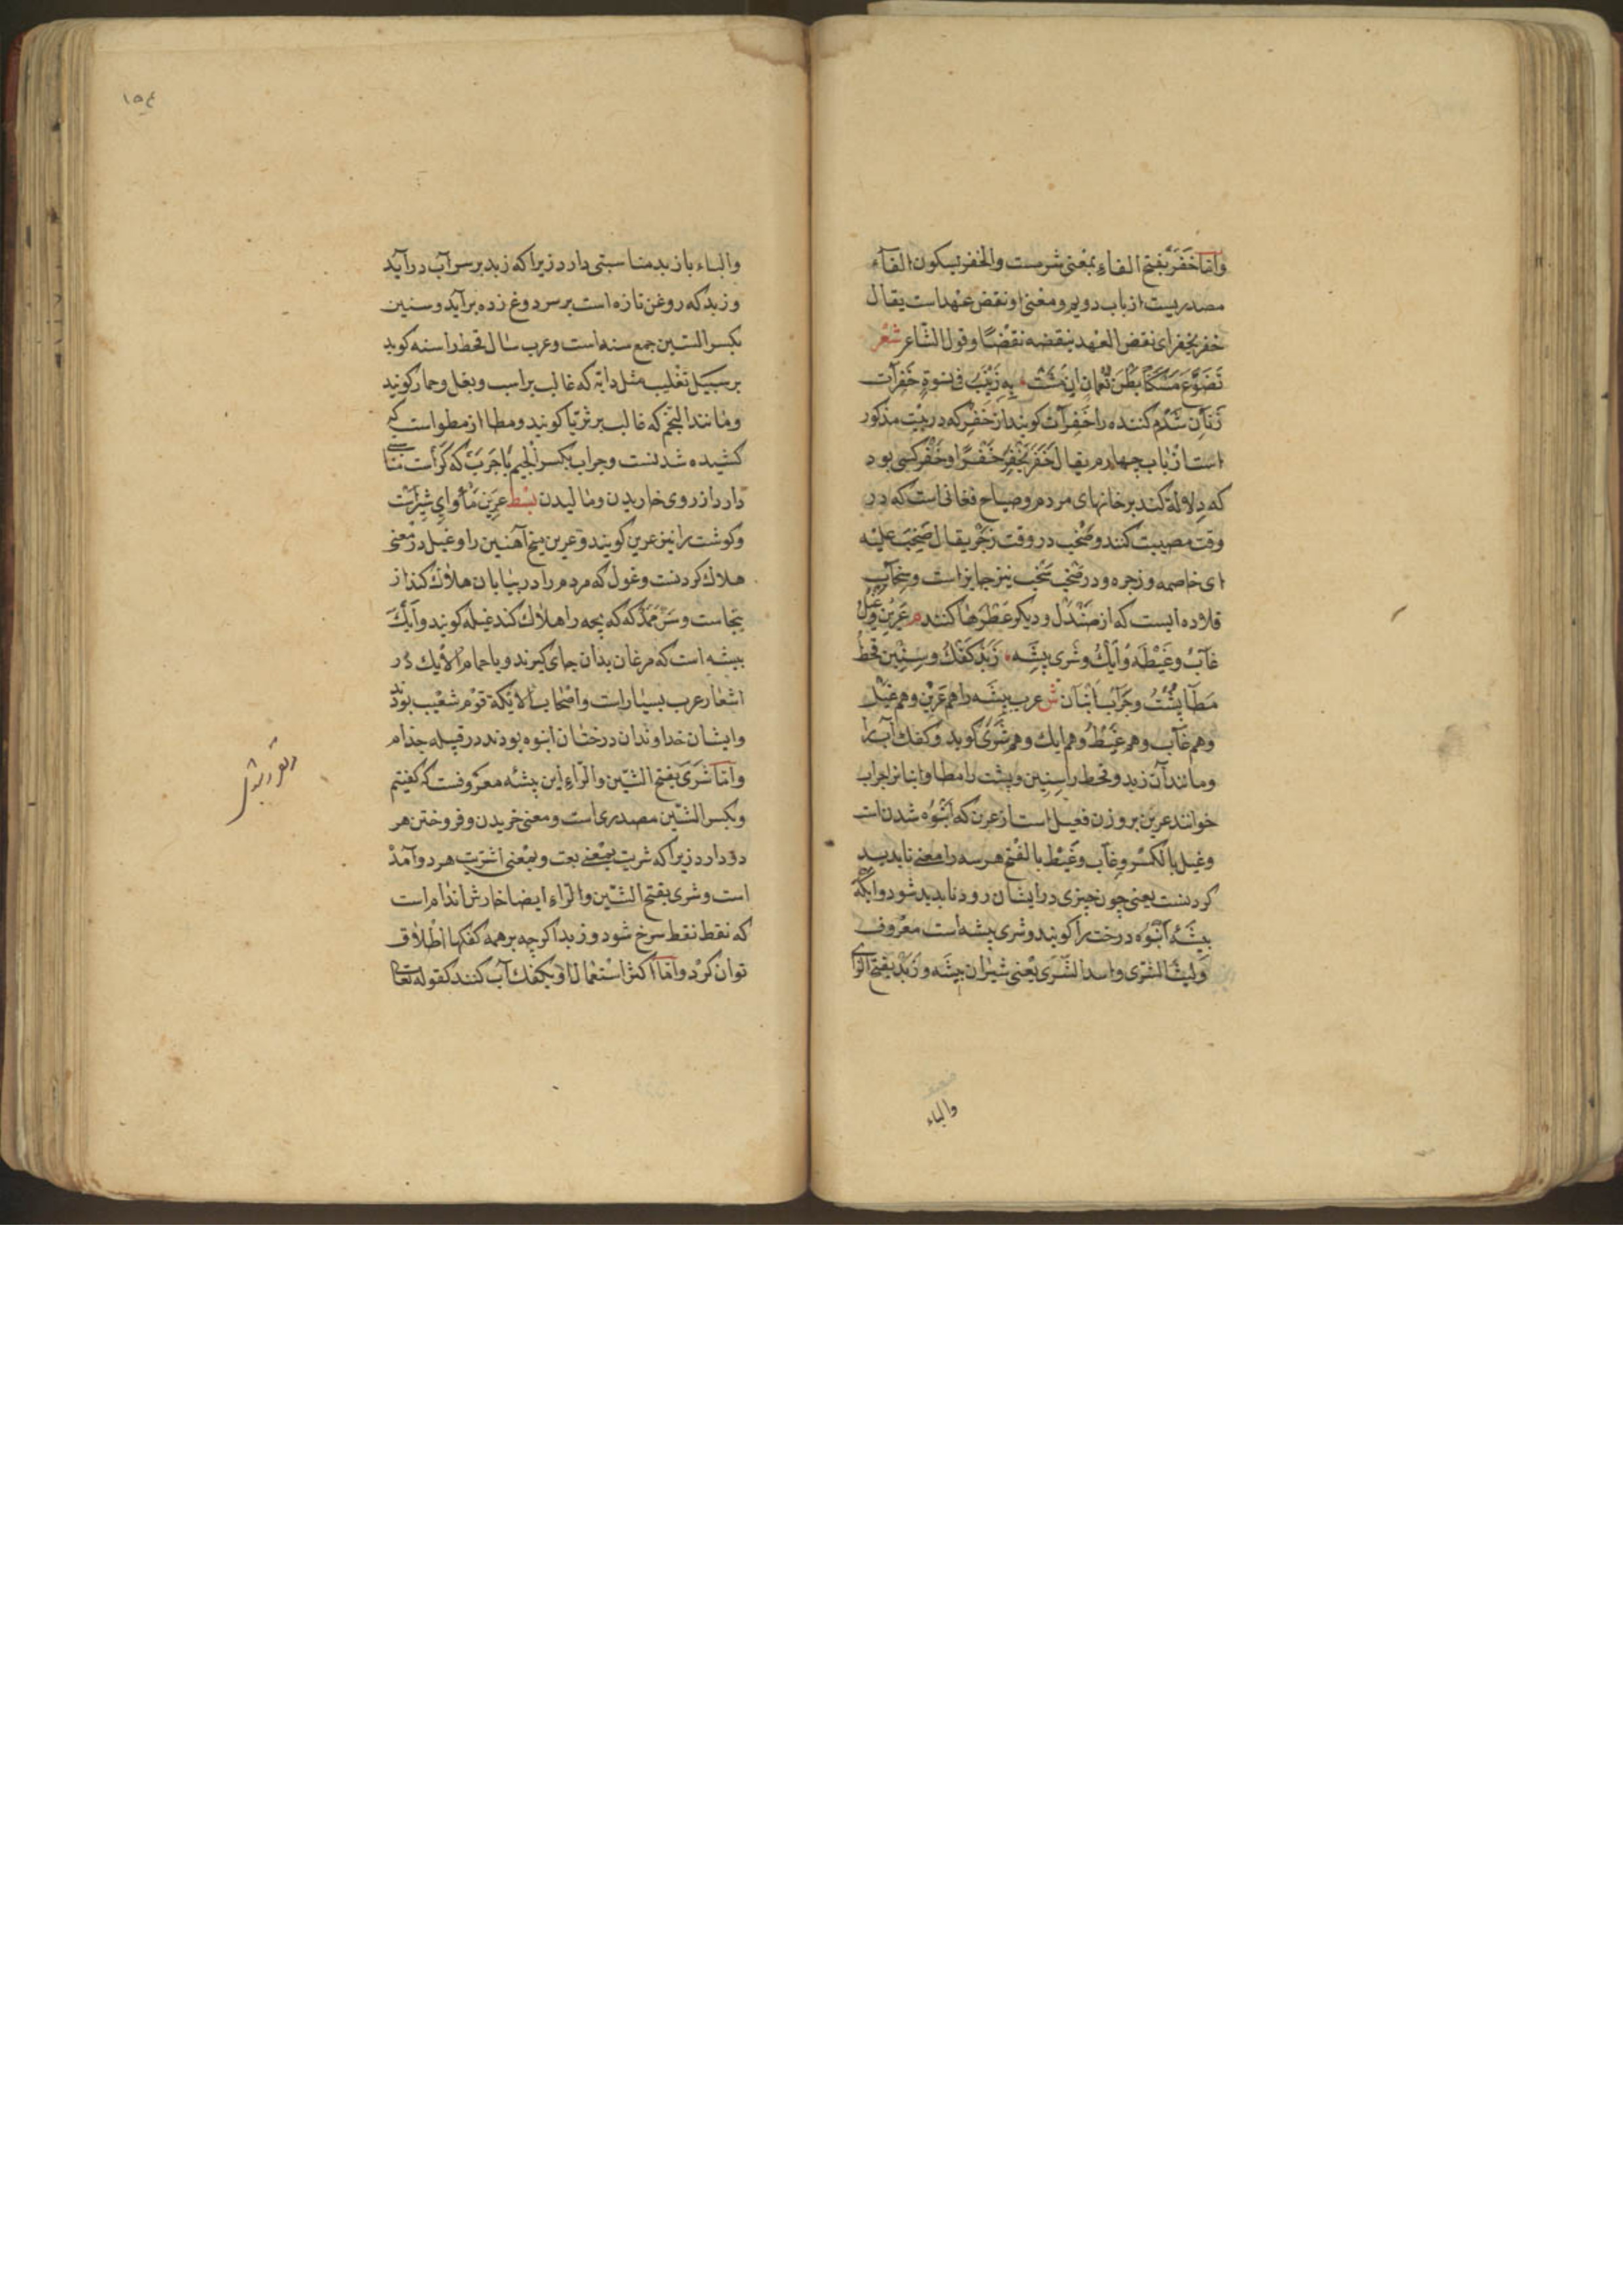 وامّا خَفَر بفتح الفاء بمعنی شرمست والخفر بسکون الفاء
مصدریست از باب دویم و معنی او نقض عهد است یقال
خفر یخفر ای نقض العهد ینقضه نقضًا و قول الشاعر شعر
تَضَوَّعَ مَسْکًا بَطْنُ نُعْمَانَ اِنْ مَشَتْ بِهِ زَیْنَبُ فی نسوةٍ خَفِرَات
زنان شرم کننده را خَفِرات کویند از خَفِر که در بیت مذکور
است از باب چهارم یقال خَفَرَ یَخْفِرُ خَفْرًا و خَفْر کسی بود
که دلالة کند بر خانهای مردم و صیاح فغانی است که در
وقت مصیبت کنند و صَخَب در وقت زَجْر یقال صَخِبَ علیه
ای خاصمه و زجره و در صَخِب سَخِب نیز جایز است و سِخاب
قلاده ایست که از صَنْدَل و دیکر عَطْرها کنند م عَرِین و غیل
غاب و غَیْطَه و اَیْک و شری بیشه زَبَد کَفْک و سِنین قحط
مَطَا پُشْت و جِرَاب اَنْبَان ش عرب بیشه را هم عَرِیْن و هم غیل
و هم غاب و هم غَیْطَ و هم ایک و هم شَرَی کوید و کفک آب را
و مانند آن زبد و قحط را سِنین و پشت را مطا و انبانرا جراب
خوانند عرین بر وزن فعیل است از عرن که انبوه شدن است
و غیل بالکسر و غاب و غَیْط بالفتح هر سه را معنی ناپدید
کردنست یعنی چون چیزی در ایشان رود ناپدید شود و ایکه
بیشهٔ انبوه درخت را کویند و شری بیشه است معروف
و لیث الشری و اسد الشری یعنی شیران بیشه و زبد بفتح الزای
والباء
۱۵٤
والباء باز بد مناسبتی دارد زیرا که زبد بر سر آب در آید
و زبد که روغن تازه است بر سر دوغ زده بر آید و سنین
بکسر السّین جمع سنه است و عرب سال قحط را سنه کوید
بر سبیل تغلیب مثل دابّه که غالب بر اسب و بغل و حمار کویند
و مانند النجم که غالب بر ثریّا کویند و مطا از مطو است که
کشیده شدنست و جراب بکسر الجیم با جَرَب که کَر است مناسبتی
دارد از روی خاریدن و مالیدن بسط عرین مأوای شیر است
و کوشت را نیز عرین کویند و عرین میخ آهنین را و غیل در معنی
هلاك کردنست و غول که مردم را در بیابان هلاك کند از
بیشه است که مرغان بدان جای کیرند و یا حمام الایك در
اشعار عرب بسیار است و اصحاب الایکة قوم شعیب بودند
و ایشان خداوندان درختان انبوه بودند در قبیله جذام
و امّا شَرَی بفتح الشّین و الراء این بیشه معروفست که کفتیم
و بکسر الشّین مصدری است و معنی خریدن و فروختن هر
دو دارد زیرا که شریت بمعنی بعت و بمعنی اشتریت هر دو آمده
است و شری بفتح الشّین و الراء ایضا خارش اندام است
که نقط نقط سرخ شود و زبد اکرچه بر همه کفکها اطلاق
توان کرد و امّا اکثر استعمال او بکفك آب کنند کقوله تعالی